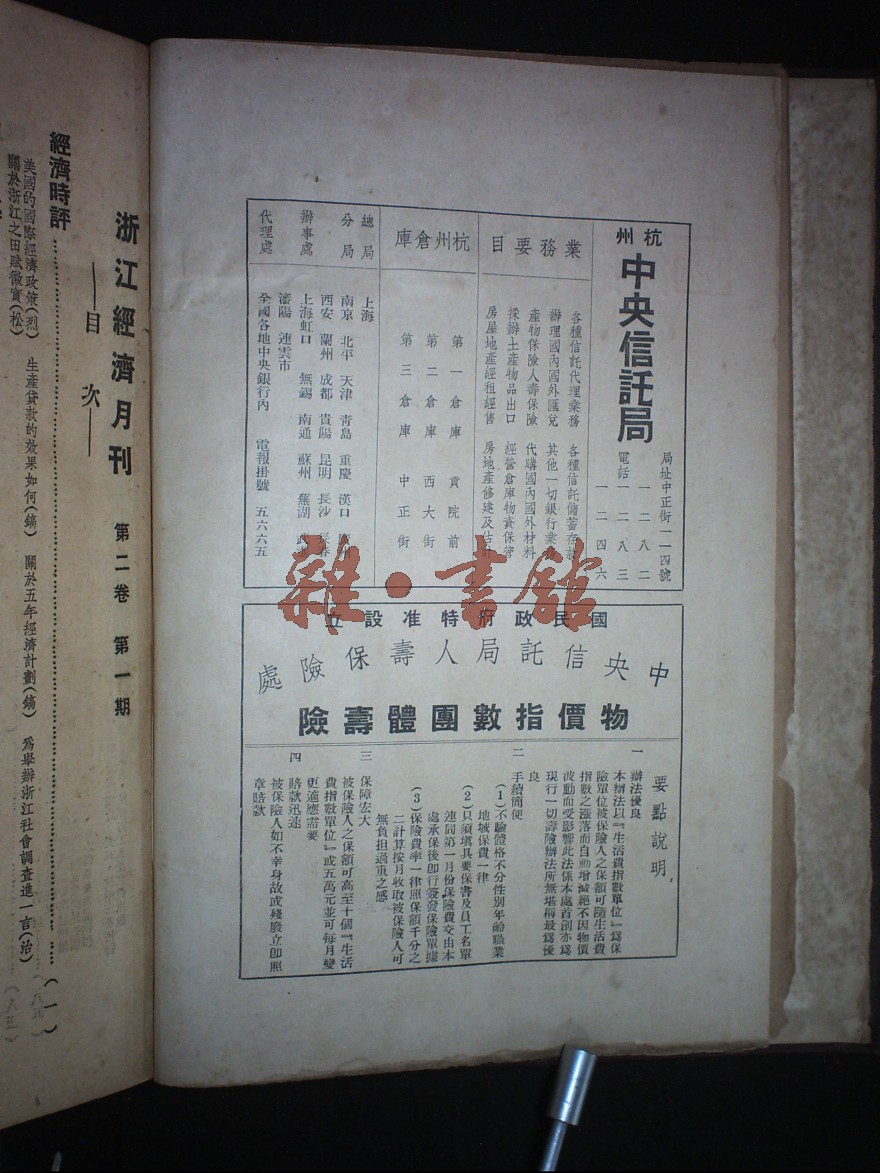 杭州
中央信託局
局址中正街一一四號
電話
一二八二
一二八三
一二四六
業務要目
各種信託代理業務　各種信託儲蓄存款
辦理國內國外匯兌　其他一切銀行業務
產物保險人壽保險　代購國內國外材料
採辦土產物品出口　經營倉庫物資保管
房屋地產經租經售　房地產修建及估計
杭州倉庫
第一倉庫　貢院前
第二倉庫　西大街
第三倉庫　中正街
總局　上海
分局　南京　北平　天津　青島　重慶　漢口
西安　蘭州　成都　貴陽　昆明　長沙　長春
辦事處　上海虹口　無錫　南通　蘇州　蕪湖
瀋陽　連雲市
代理處　全國各地中央銀行內　電報掛號　五六六五
國民政府特准設立
中央信託局人壽保險處
物價指數團體壽險
要點說明
一　辦法優良
本辦法以『生活費指數單位』爲保
險單位被保險人之保額可隨生活費
指數之漲落而自動增減絕不因物價
波動而受影響此法係本處首創亦爲
現行一切壽險辦法所無堪稱最爲優
良
二　手續簡便
(1)不驗體格不分性別年齡職業
地域保費一律
(2)只須填具要保書及員工名單
連同第一月份保險費交由本
處承保後即行簽發保險單據
(3)保險費率一律照保額千分之
二計算按月收取被保險人可
無負担過重之感
三　保障宏大
被保險人之保額可高至十個『生活
費指數單位』或五萬元並可每月變
更適應需要
四　賠款迅速
被保險人如不幸身故或殘廢立即照
章賠款
浙江經濟月刊　第二卷　第一期
——目次——
經濟時評……(一)
美國的國際經濟政策(烈)　生產貸款的效果如何(鏑)　關於五年經濟計劃(鏑)　爲舉辦浙江社會調查進一言(治)
關於浙江之田賦徵實(松)
雜·書館